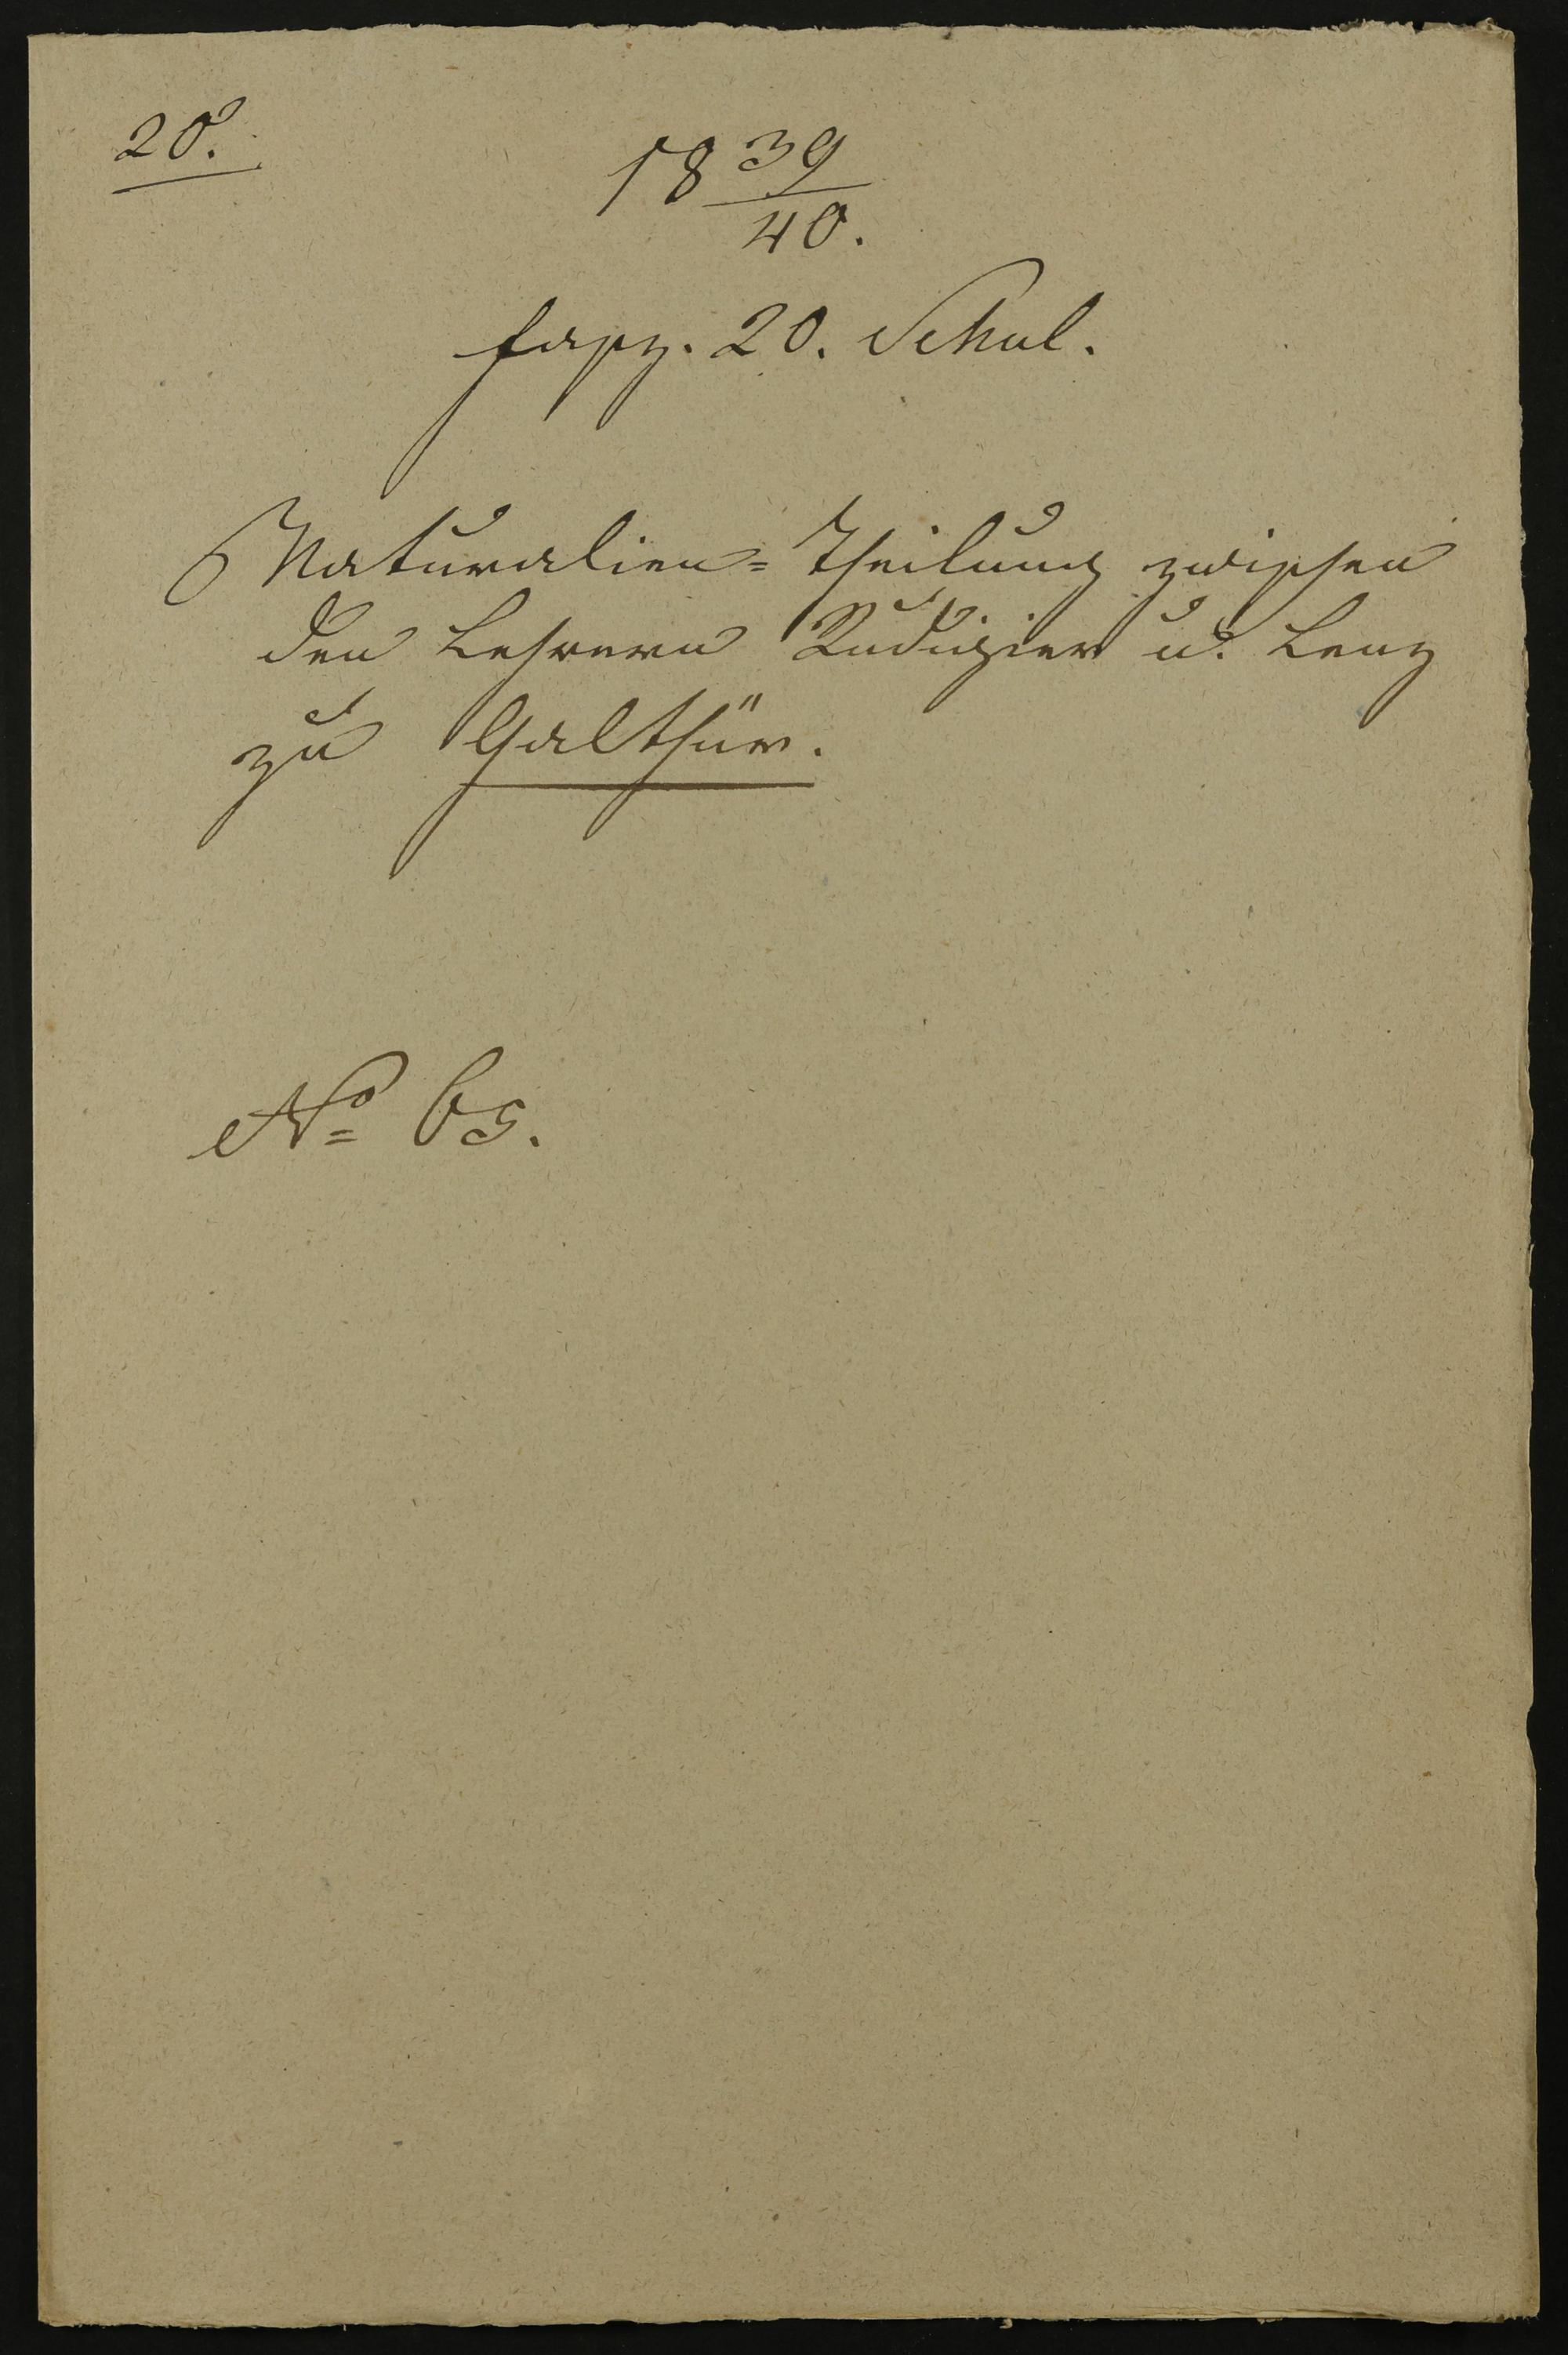 20.
18 39/40.
fasz. 20. Schul.
Naturalien=Theilung zwischen
den Lehrern Rudigier u. Lenz
zu Galthür.
No 65.